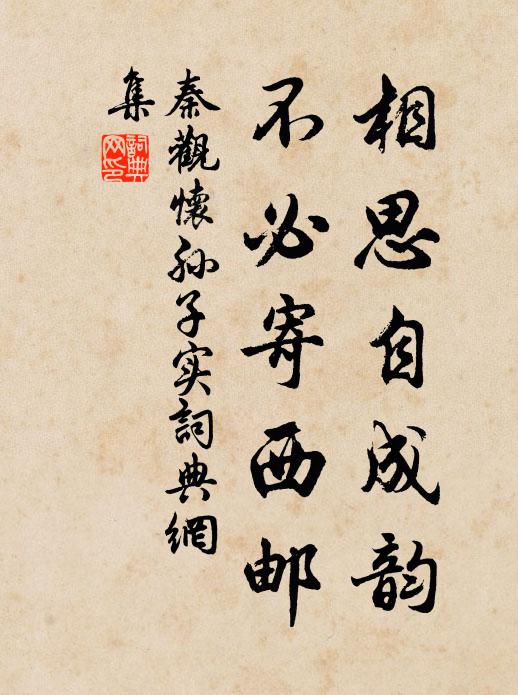 相思自成韵
不必寄西邮
秦觀懷孙子实詞典網
集
詞典
网印